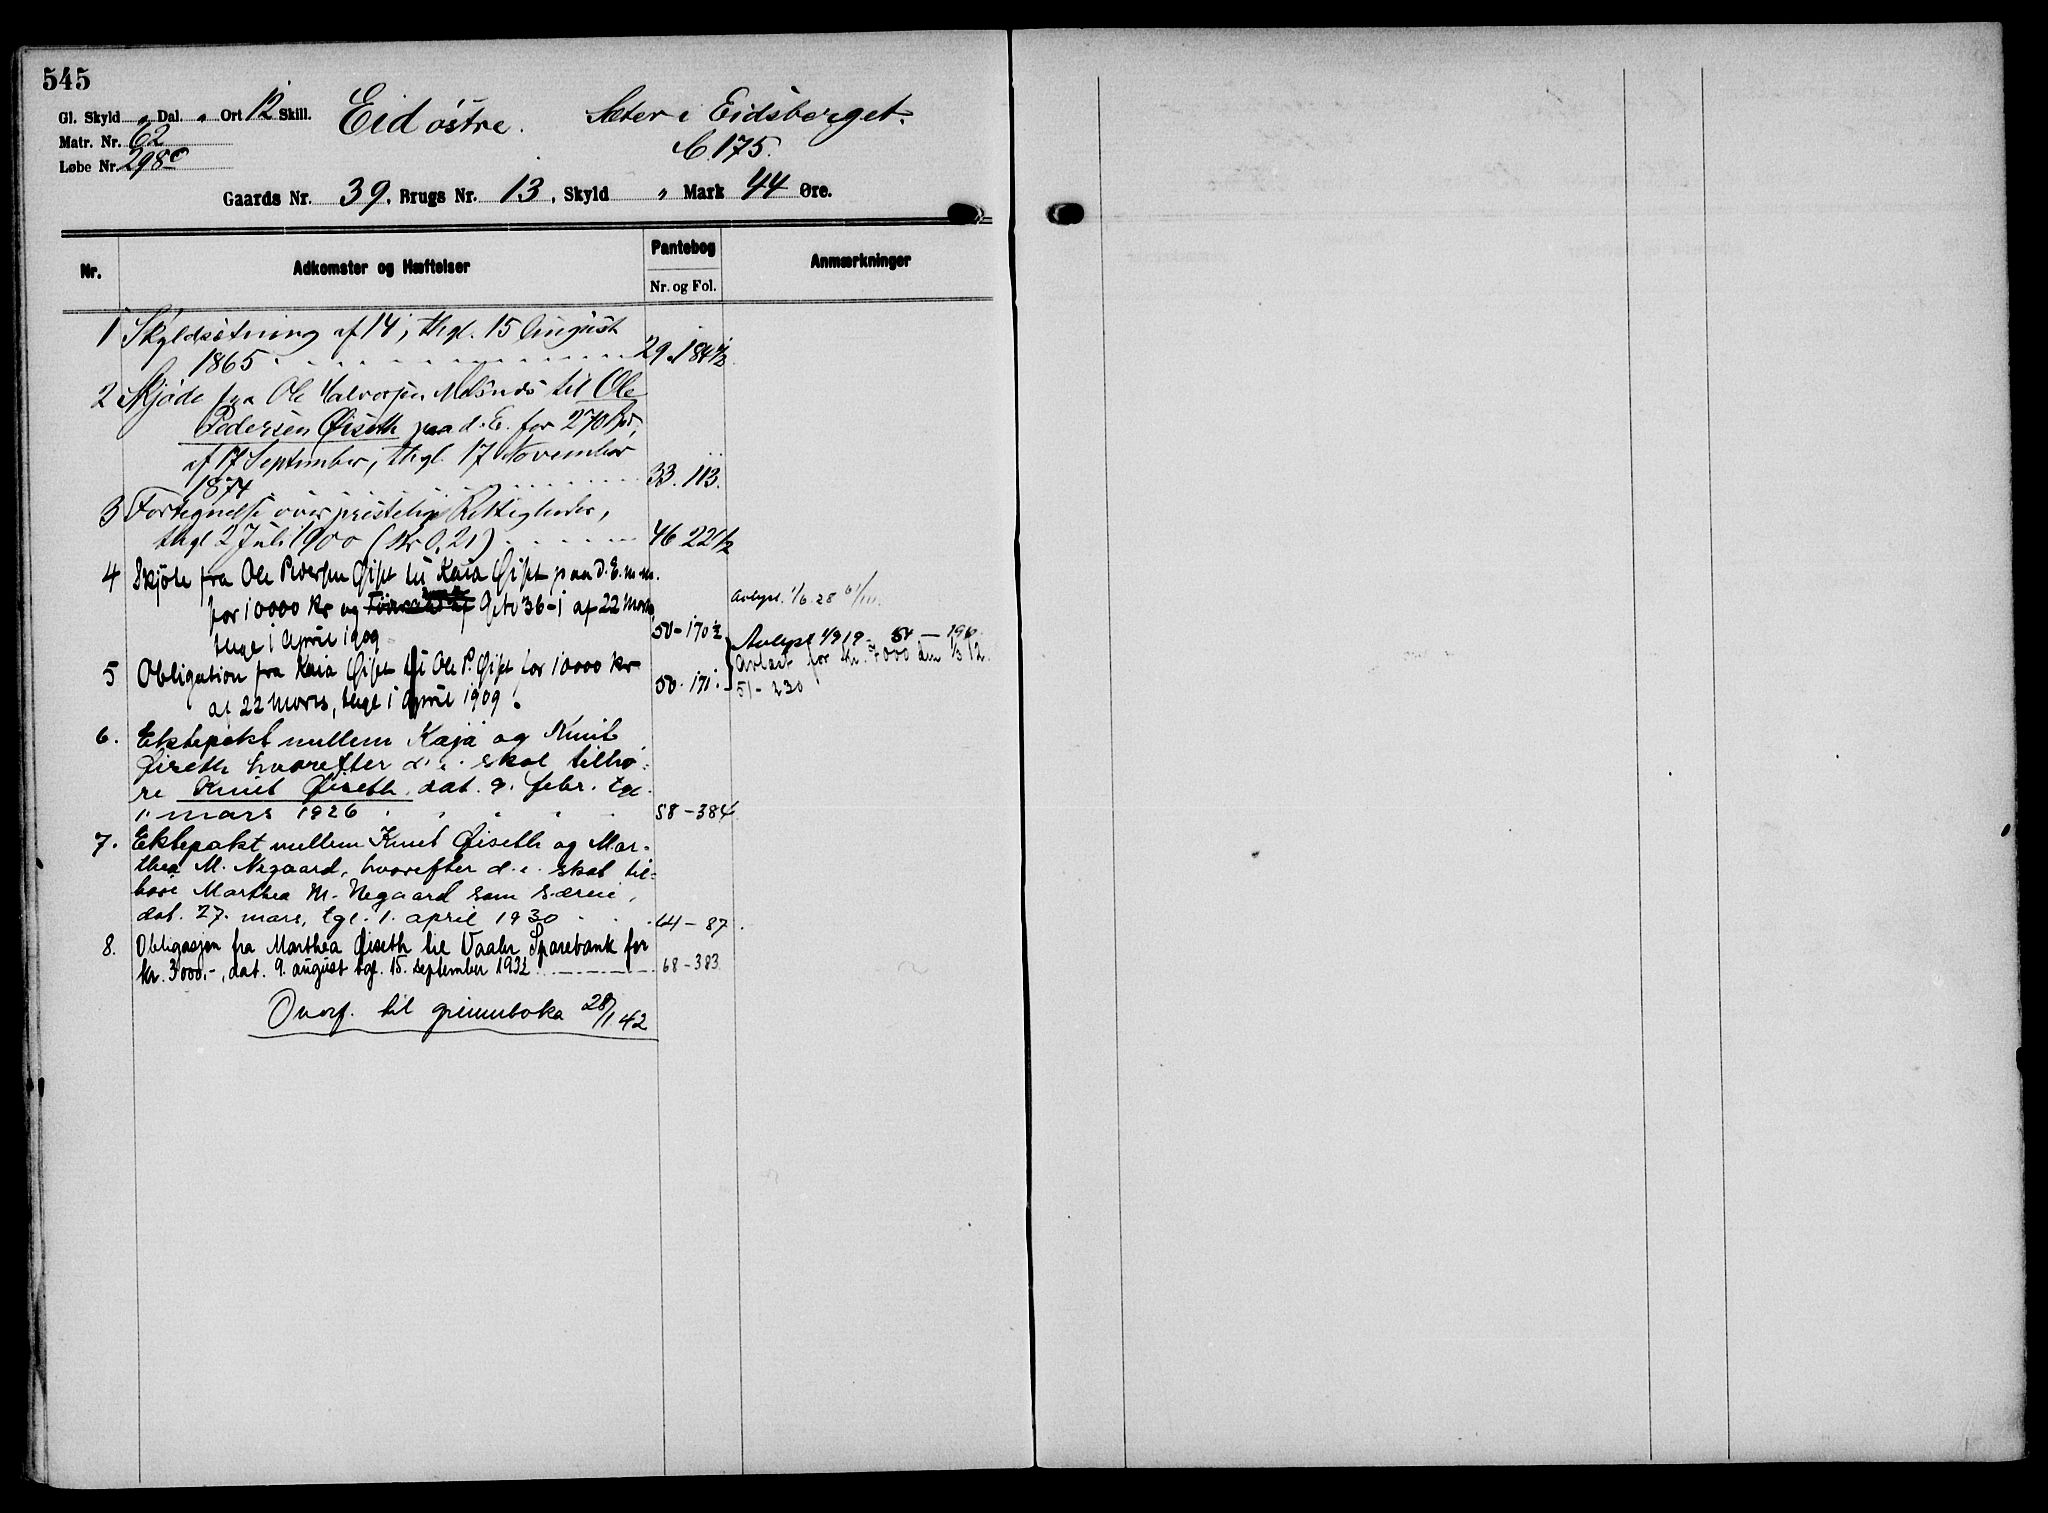 545
Gl. Skyld " Dal. " Ort 12 Skill. Eid østre. Sæter i Eidsberget.
Matr. Nr. 62
b. 175.
Løbe Nr. 298c
Gaards Nr. 39. Brugs Nr. 13, Skyld " Mark 44 Øre.
Nr. Adkomster og Hæftelser Pantebog Anmærkninger
Nr. og Fol.
1 Skyldsetning af 14, thgl. 15 August
1865 29. 184 1/2
2 Skjøde fra Ole Halvorsen til Ole
Pedersen Øiseth paa d. E. for 270 Spd,
af 17 September, thgl. 17 November
1874 33. 113.
3 Fortegnelse over prestelige Rettigheder,
thgl 2 Juli 1900 (Kr 0,21) 46 221/2
4 Skjøte fra Ole Pedersen Øiset til Kaia Øiset paa d. E. m. m.
for 10000 kr og Gnr 36-1 af 22 Mars Avlyst. 1/6 28
tlyst 1 April 1909 50-170 1/2 Avlyst 1/9 19 - 54 - 196
5 Obligation fra Kaia Øiset til Ole P. Øiset for 10000 kr avlæst for kr. 7000 den 1/3 12.
af 22 Mars, tlgt 1 April 1909. 50-171. 51-230
6. Ektepakt mellem Kaja og Knut
Øiseth hvorefter d. e. skal tilhø-
re Knut Øiseth, dat. 9. febr. tgl.
1. mars 1926 58-384
7. Ektepakt mellem Knut Øiseth og Mar-
thea M. Negaard, hvorefter d. e. skal til-
høre Marthea M. Negaard som særeie,
dat. 27. mars, tgl. 1. april 1930 64-87
8. Obligasjon fra Marthea Øiseth til Vaaler Sparebank for
kr. 3000.-, dat. 9. august tgl. 15. september 1932 68-383
Overf. til grunnboka 28/1 42